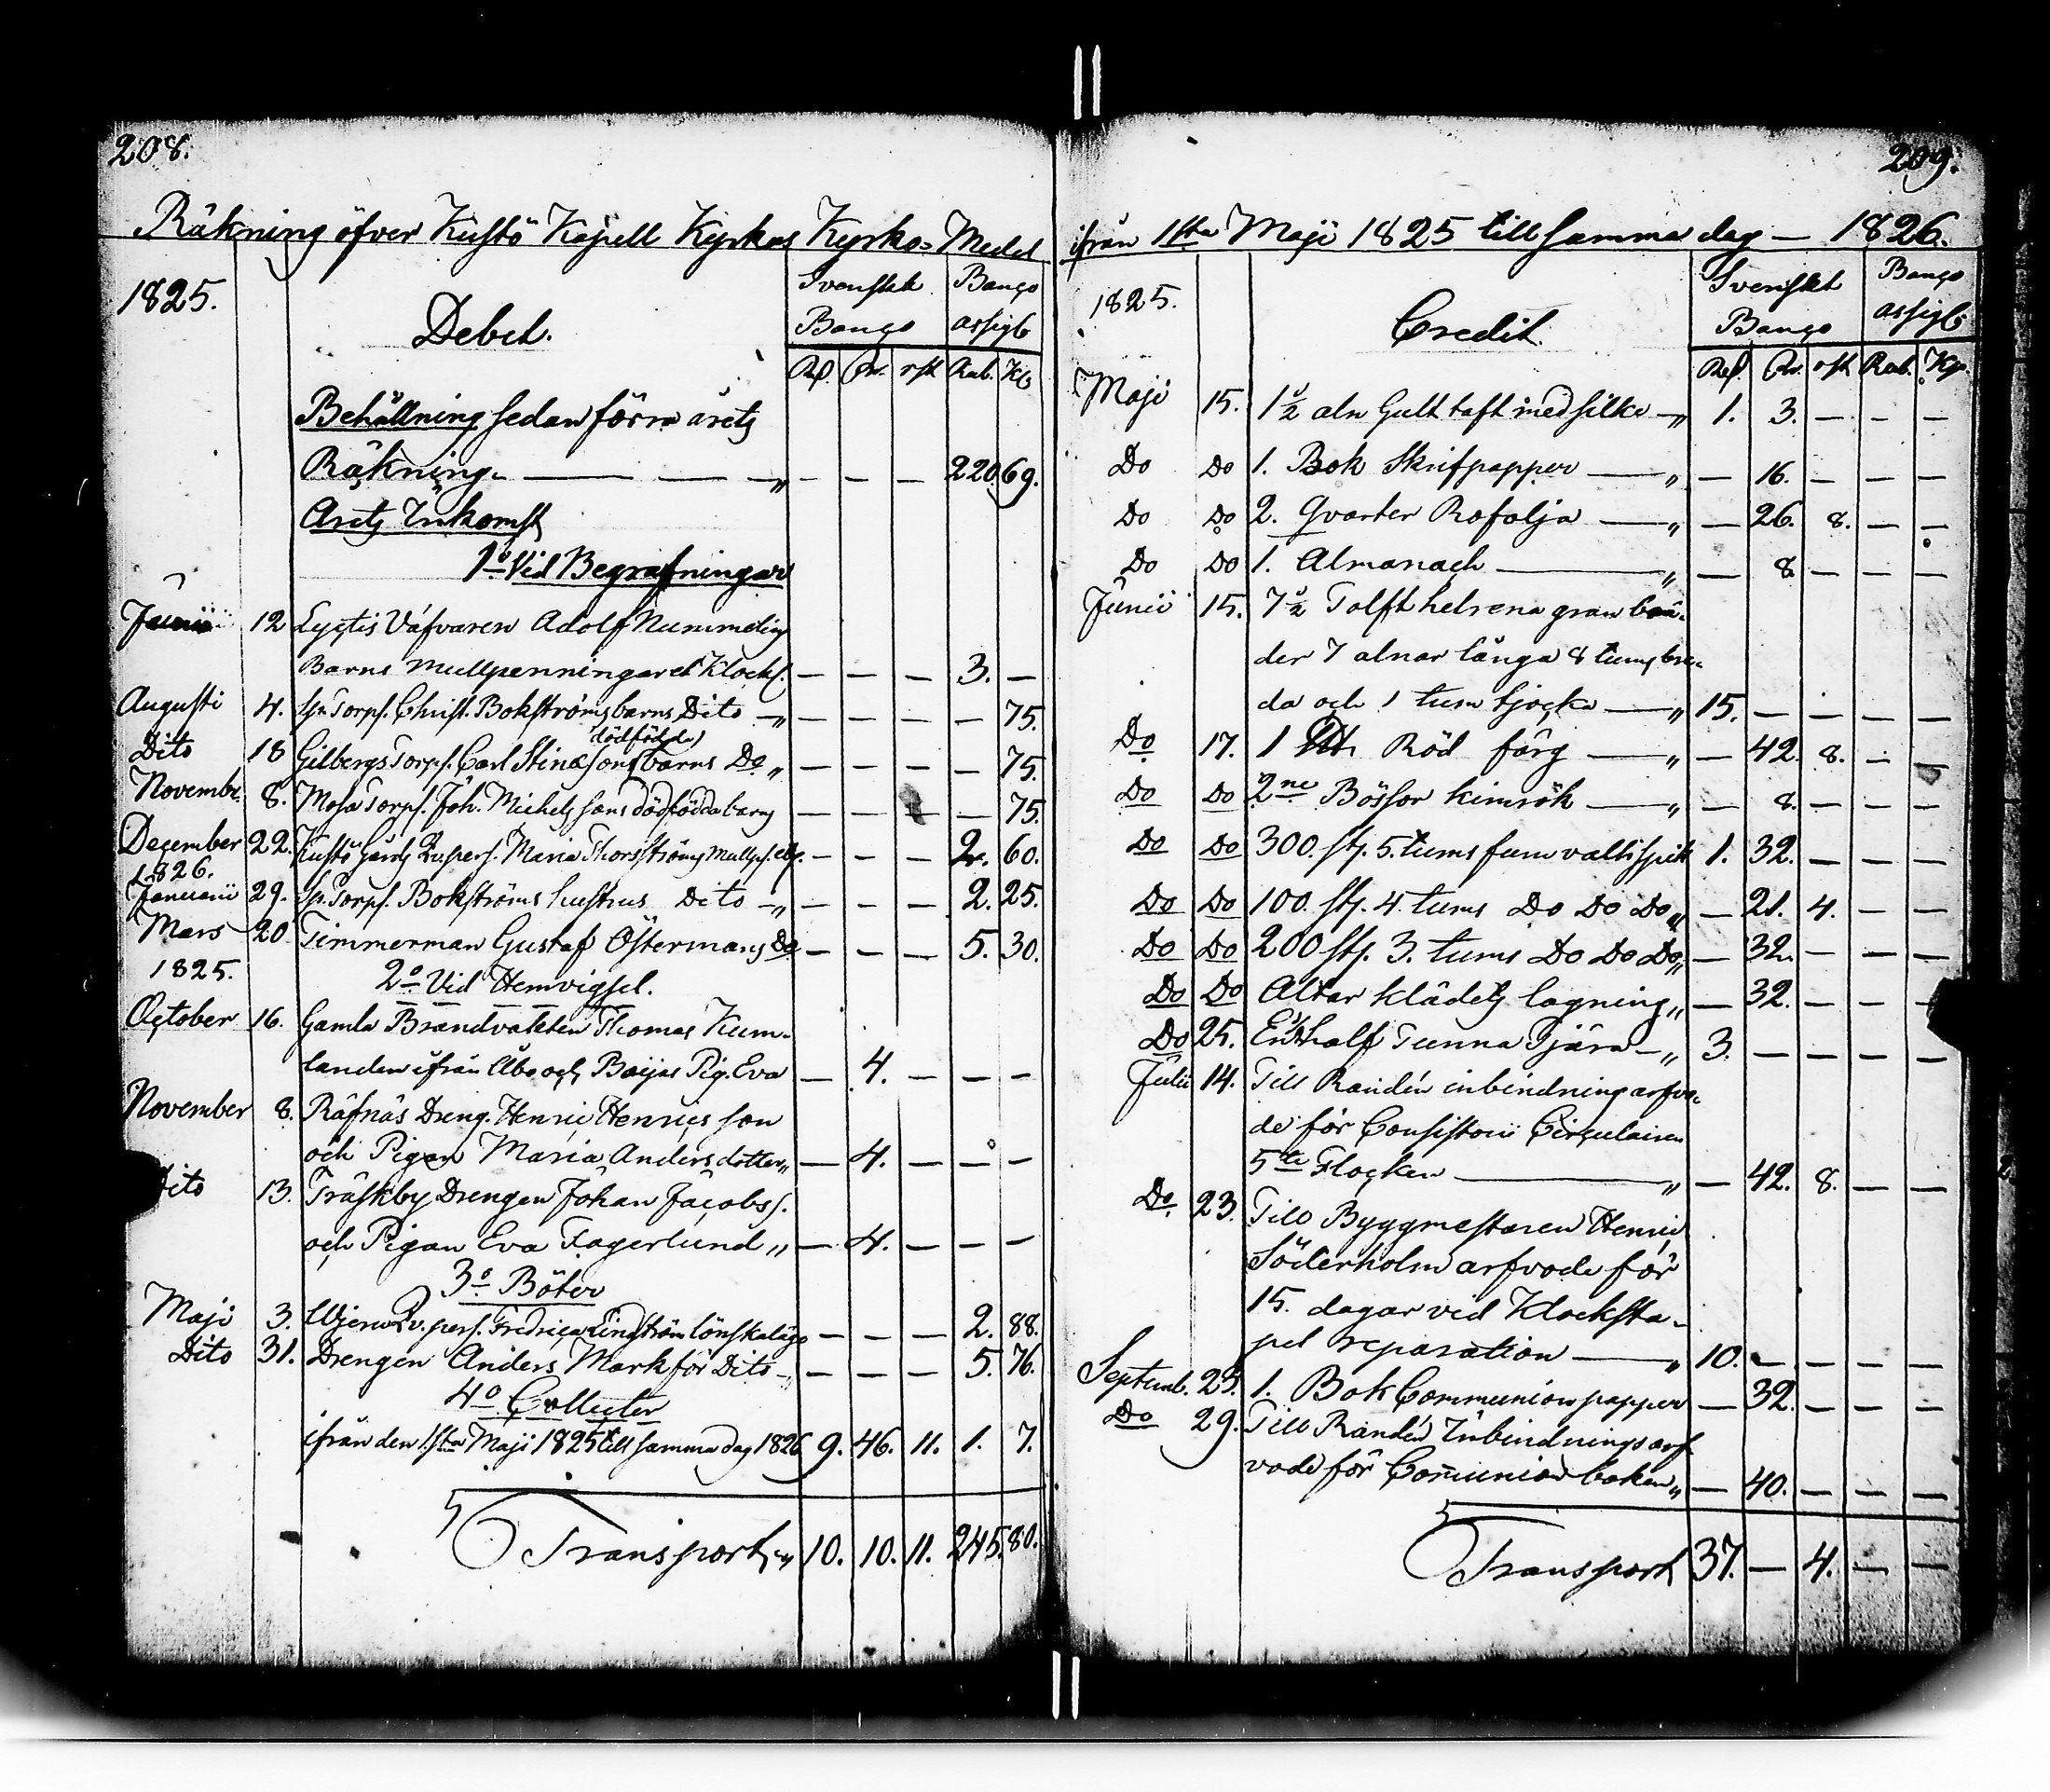 208.
Räkning öfver Kustö Kapell Kyrkas Kyrko=Medel
1825.
Debet.
Svenskt Banco
Banco assigt
Rd. Sk. rst Rub. Kp
Behållning sedan förra årets
Räkning. — — — „ — — — 220. 69.
Årets Inkomst
1º Vid Begrafningar
Junii 12 Lyctis Väfvaren Adolf Nummelins
Barns mullpenningar et Klock. — — — 3. —
Augusti 4. Torps. Christ. Bokströms barns Dito „ — — — — 75.
dödfödda
Dito 18 Gilbergs Torps. Carl Stinæ sons barns Do „ — — — — 75.
Novembr. 8. Mosa Torps. Joh. Michels sons dödfödda barns — — — — 75.
December 22. Kustö Gårds Qv.pers. Maria Thorsströms Mullp. — — — 2. 60.
1826.
Januarii 29. Torps. Bokströms hustrus Dito „ — — — 2. 25.
Mars 20 Timmerman Gustaf Östermans Do — — — 5. 30.
1825.
2º Vid Hemvigsel.
October 16. Gamla Brandvakten Thomas Kum-
landen ifrån Åbo och Baijas Pig. Eva — 4. — — —
November 8. Räfnäs Dreng. Henric Henrics son
och Pigan Maria Andersdotter „ — 4. — — —
Dito 13. Träskby Drengen Johan Jacobs.
och Pigan Eva Fagerlund „ — 4. — — —
3º Böter
Maji 3. Qv. pers. Fredrica Lindström lönskaläge — — — 2. 88.
Dito 31. Drengen Anders Mark för Dito „ — — — 5. 76.
4º Collecter
ifrån den 1sta Maji 1825 till samma dag 1826 9. 46. 11. 1. 7.
Transport „ 10. 10. 11. 245. 80.
209.
ifrån 1sta Maji 1825 till samma dag — 1826.
1825.
Credit.
Svenskt Banco
Banco assigt
Rd. Sk. rst Rub. Kp.
Maji 15. 1½ aln Gult taft med silke — „ 1. 3. — — —
Do Do 1. Bok Skrifpapper — „ — 16. — — —
Do Do 2. Qvarter Rofolja — „ — 26. 8. — —
Do Do 1. Almanach — „ — 8. — — —
Junii 15. 7½ Tolft helrena gran brä-
der 7 alnar långa 8 tums bre-
da och 1 tum tjocka — „ 15. — — — —
Do 17. 1 Röd färg — „ — 42. 8. — —
Do Do 2ne Bössor kimrök — „ — 8. — — —
Do Do 300. st. 5. tums spik 1. 32. — — —
Do Do 100. st. 4. tums Do Do Do „ — 21. 4. — —
Do Do 200 st. 3. tums Do Do Do „ — 32. — — —
Do Do Altar klädets lagning „ — 32. — — —
Do 25. En half Tunna Tjära — „ 3. — — — —
Julii 14. Till Randén inbindning arfvo-
de för Consistorii Circulairen
5te Flocken — „ — 42. 8. — —
Do 23. Till Byggmestaren Henric
Söderholm arfvode för
15. dagar ved Klocksta-
pel reparation — „ 10. — — — —
Septemb. 23. 1. Bok Communion papper — 32. — — —
Do 29. Till Randén Inbindnings arf
vode för Communion boken „ — 40. — — —
Transport 37. — 4. — —